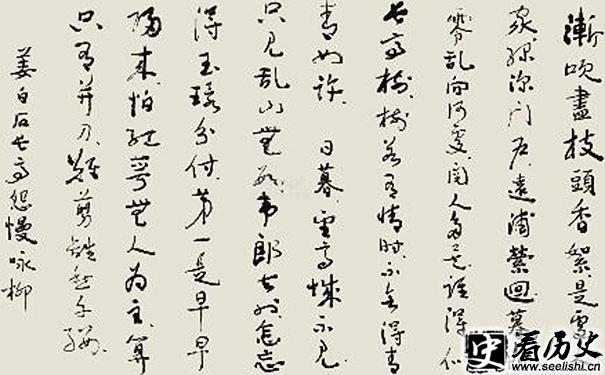 漸吹盡枝頭香絮是處
家綠深门户遠浦縈迴暮
零亂向何處阅人多矣谁得似
长亭樹樹若有情時不會得青
青如許 日暮望高城不見
只見乱山無數韦郎去也怎忘
得玉環分付第一是早早
歸来怕红萼無人為主算
只有并刀難剪離愁千缕
姜白石长亭怨慢咏柳
史看历史
www.seelishi.cn